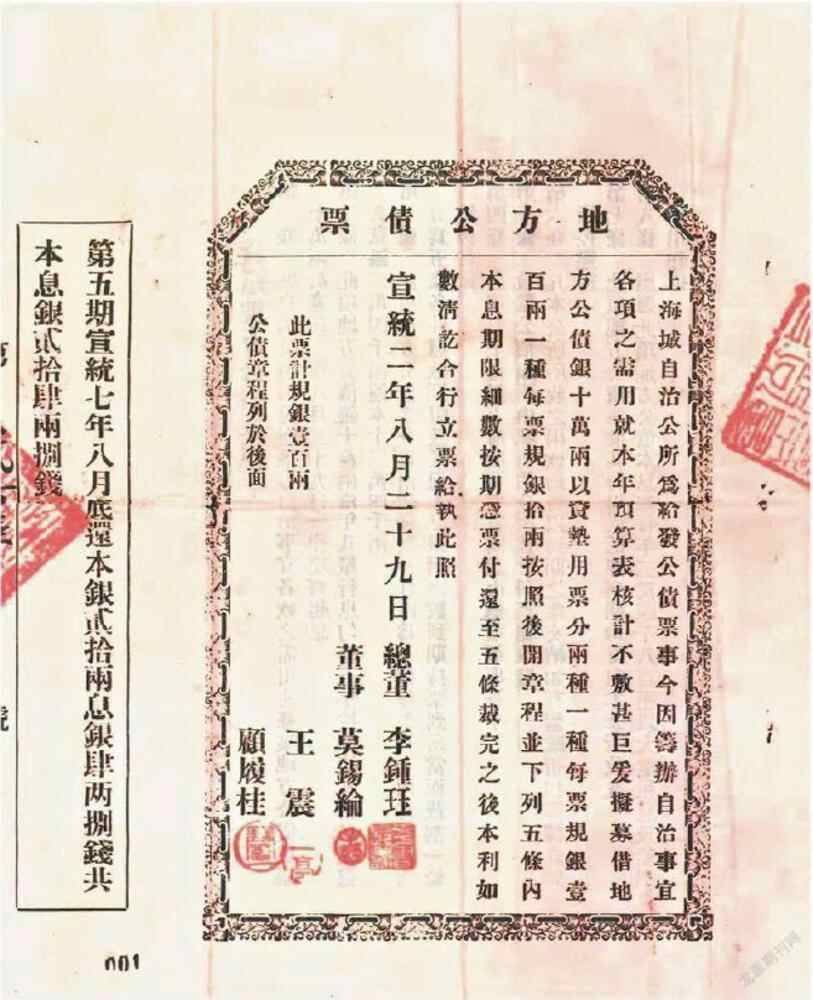 地方公債票
上海城自治公所爲給發公債票事今因籌辦自治事宜
各項之需用就本年預算表核計不敷甚巨爰擬募借地
方公債銀十萬兩以資墊用票分兩種一種每票規銀壹
百兩一種每票規銀拾兩按照後開章程並下列五條內
本息期限細數按期憑票付還至五條裁完之後本利如
數清訖合行立票給執此照
宣統二年八月二十九日 總董 李鍾珏
董事 莫錫綸
此票計規銀壹百兩 王震
公債章程列於後面 顧履桂
第五期宣統七年八月底還本銀貳拾兩息銀肆两捌錢共
本息銀貳拾肆兩捌錢
第
號
001
龙源期刊网